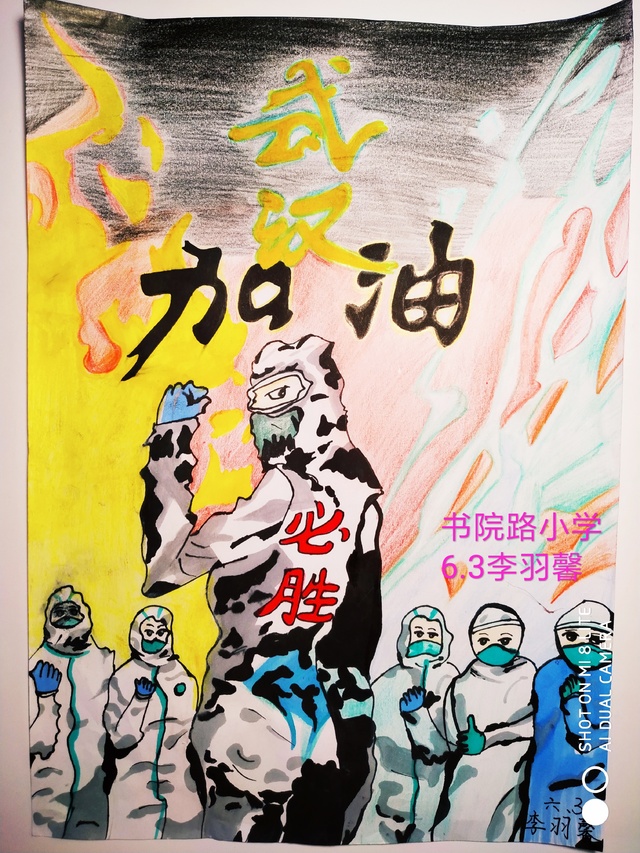 武
汉
加油
必
胜
书院路小学
6.3李羽馨
六.3
李羽馨
SHOT ON MI 8 LITE
AI DUAL CAMERA